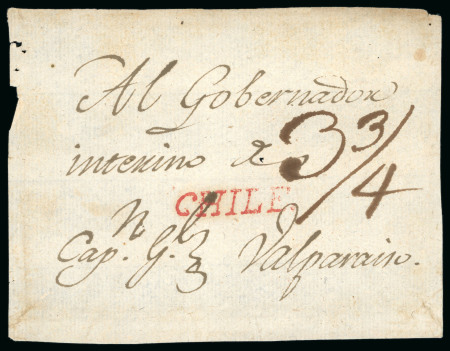 Al Gobernador
interino de 3 3/4
CHILE
Cap.n G.l Valparaiso.